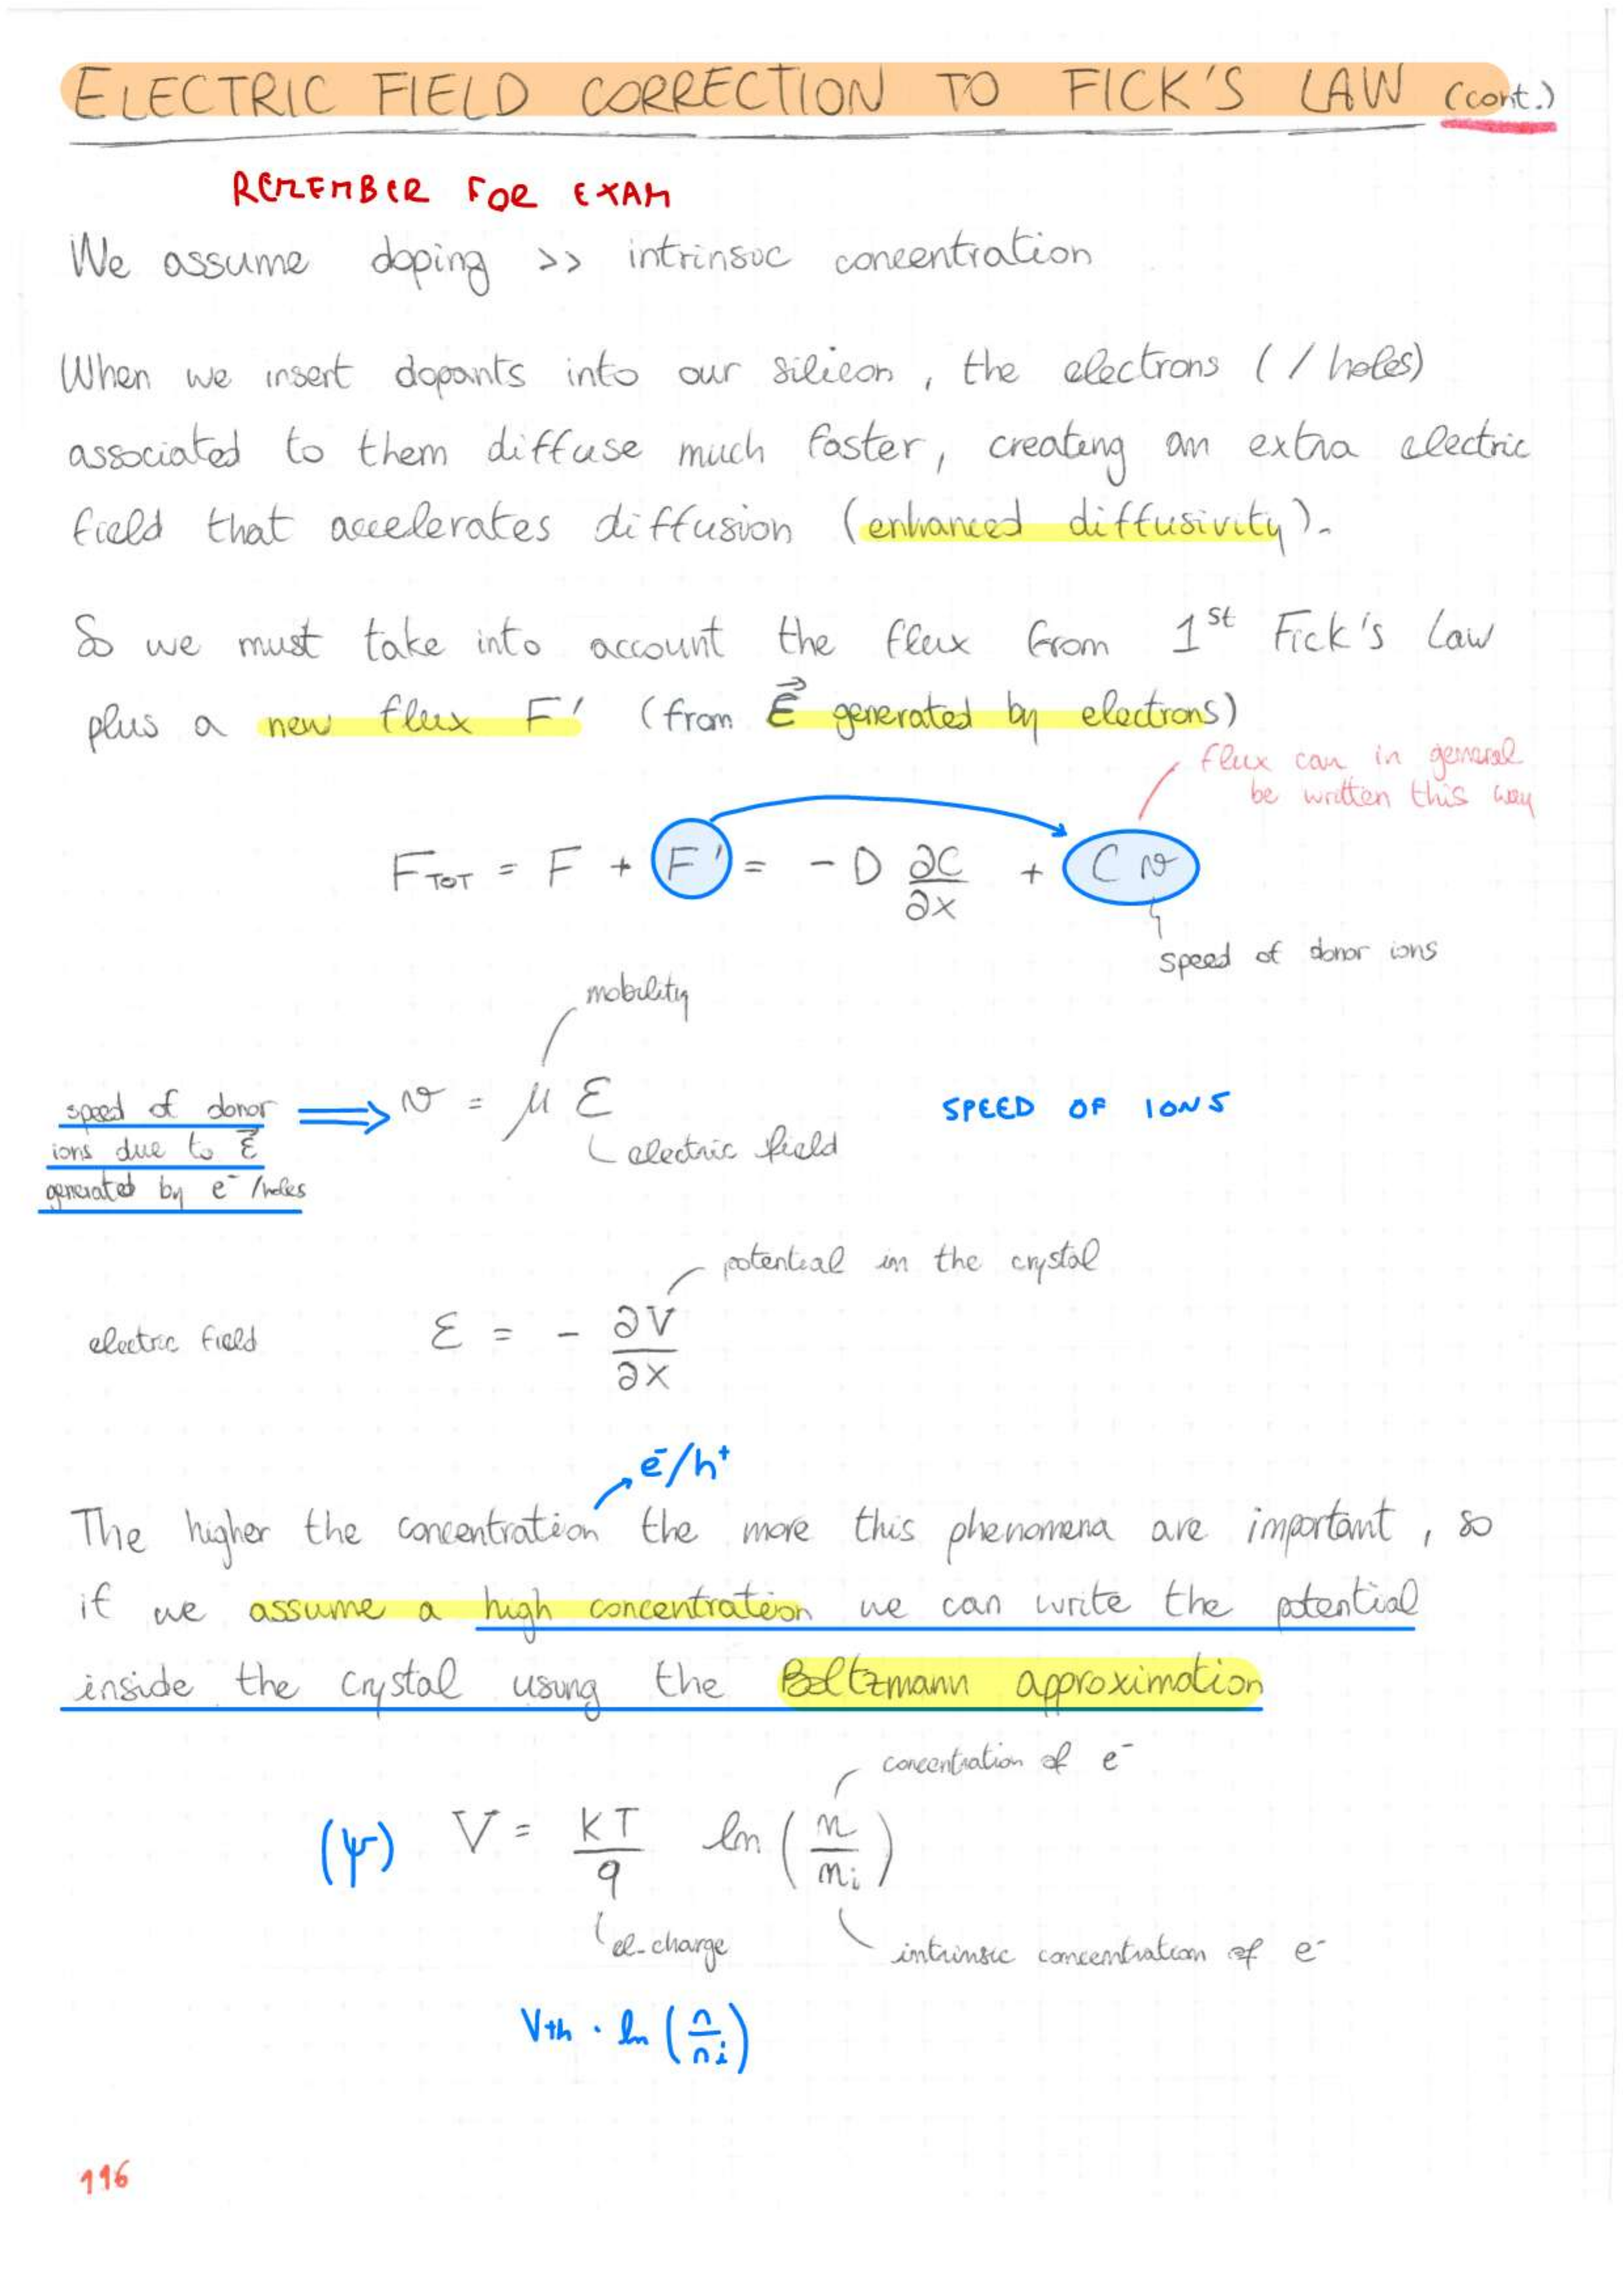 ELECTRIC FIELD CORRECTION TO FICK'S LAW (cont.)
REMEMBER FOR EXAM
We assume doping >> intrinsic concentration
When we insert dopants into our silicon, the electrons (/ holes)
associated to them diffuse much faster, creating an extra electric
field that accelerates diffusion (enhanced diffusivity).
So we must take into account the flux from 1st Fick's Law
plus a new flux F' (from E⃗ generated by electrons)
flux can in general
be written this way
F_TOT = F + F' = - D ∂C/∂x + C v
speed of donor ions
mobility
speed of donor
ions due to E⃗
generated by e⁻/holes
⇒ v = μ ε
SPEED OF IONS
electric field
potential in the crystal
electric field ε = - ∂V/∂x
e⁻/h⁺
The higher the concentration the more this phenomena are important, so
if we assume a high concentration we can write the potential
inside the crystal using the Boltzmann approximation
concentration of e⁻
(ψ) V = kT/q ln(n/ni)
el. charge
intrinsic concentration of e⁻
Vth · ln(n/ni)
116